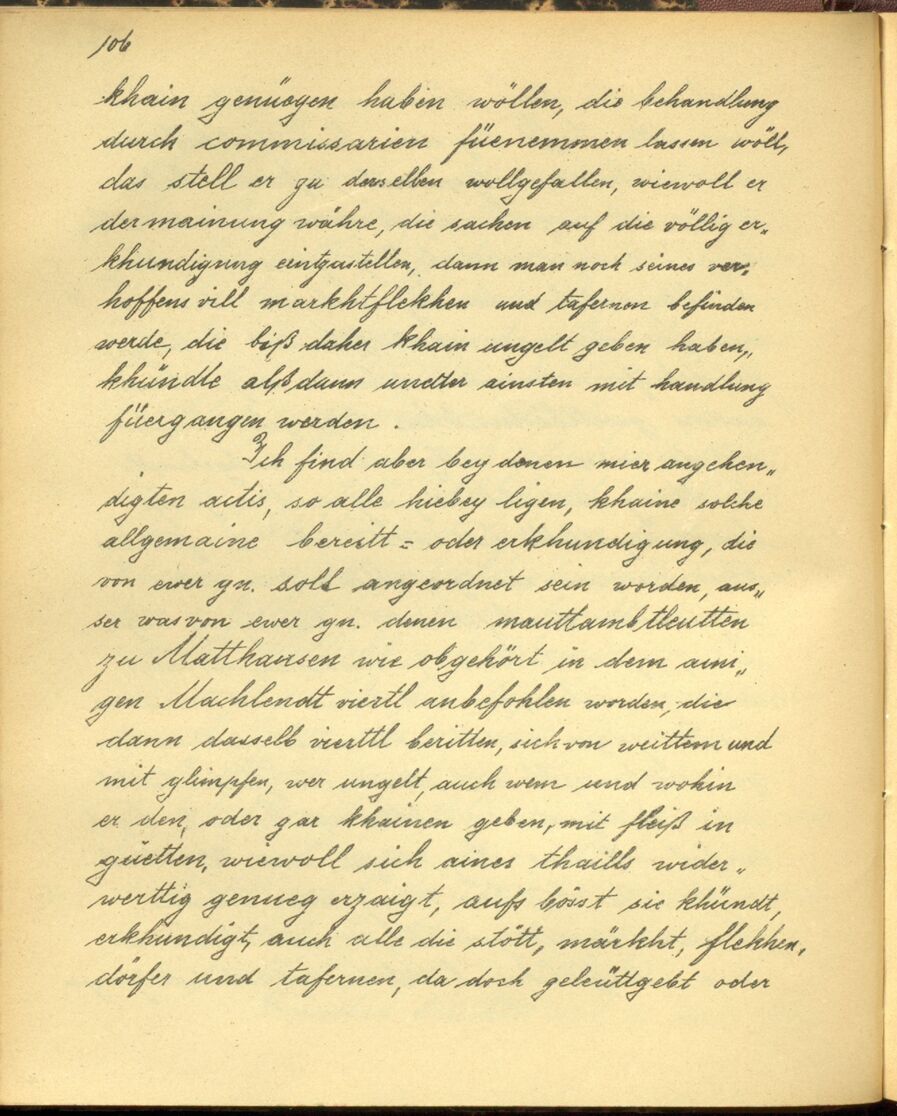 106
khain genüegen haben wöllen, die behandlung
durch commissarien füenemmen lassen wöll,
das stell er zu derselben wollgefallen, wiewoll er
der mainung währe, die sachen auf die völlig er„
khundigung eintzustellen, dann man noch seines ver„
hoffens vill markhtflekhen und tafernen befinden
werde, die biß daher khain ungelt geben haben,,
khündte alßdann undter ainsten mit handlung
füergangen werden.
Ich find aber bey denen mier angehen„
digten actis, so alle hiebey ligen, khaine solche
allgemaine bereitt = oder erkhundigung, die
von ewer gn. soll angeordnet sein worden, aus„
ser was von ewer gn. denen mauttambtleutten
zu Matthausen wie obgehört in dem aini„
gen Machlendt viertl anbefohlen worden, die
dann dasselb vierttl beritten, sich von weittem und
mit glimpfen, wer ungelt, auch wem und wohin
er den, oder gar khainen geben, mit fleiß in
güetten, wiewoll sich aines thaills wider„
werttig genueg erzaigt, aufs bösst sie khündt,
erkhundigt, auch alle die stött, märkht, flekhen,
dörfer und tafernen, da doch geleüttgebt oder